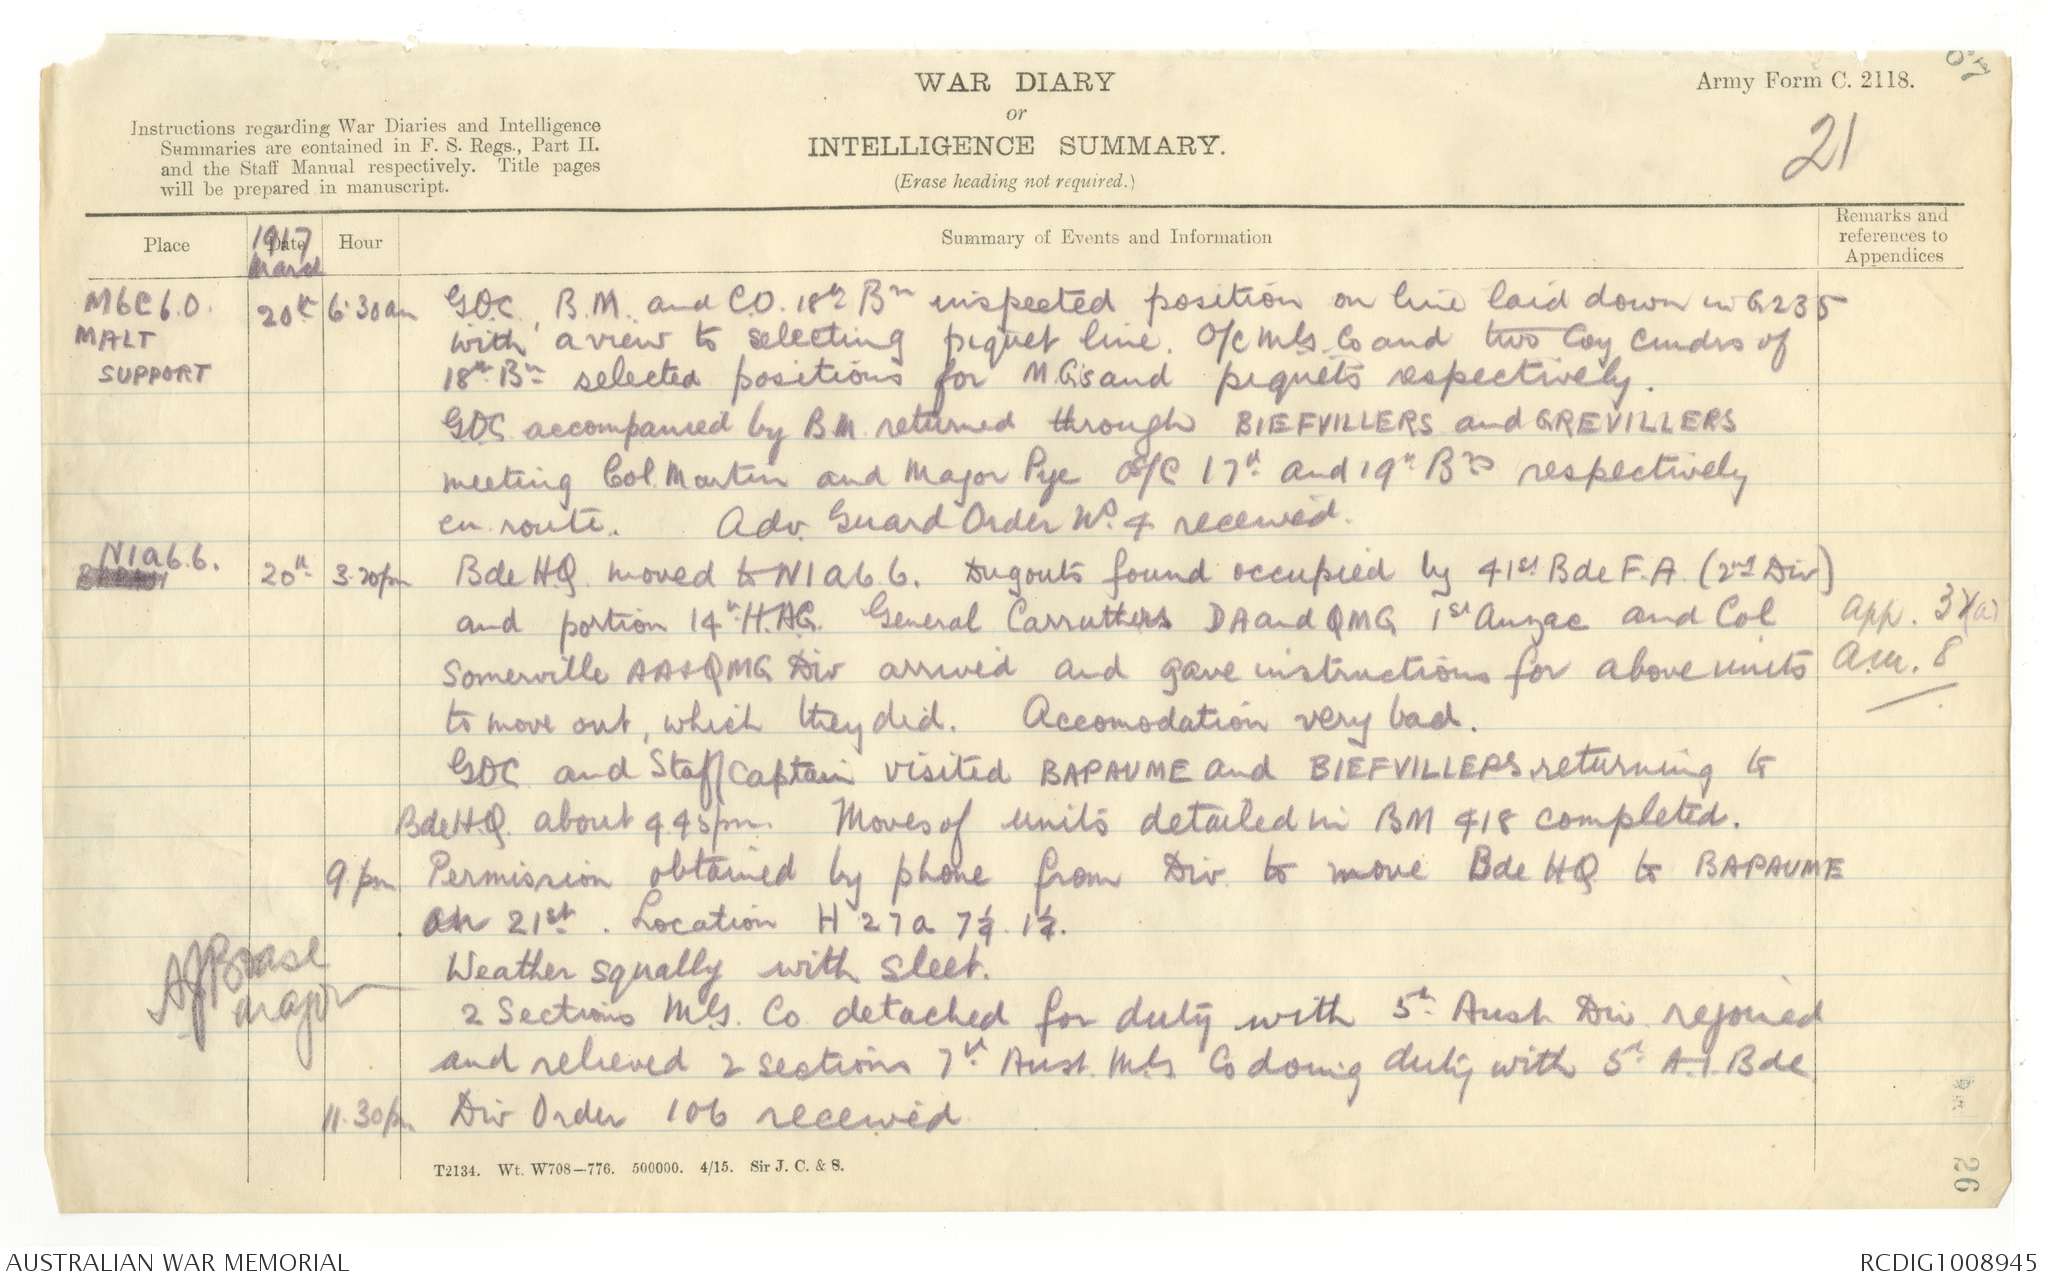 WAR DIARY
or
INTELLIGENCE SUMMARY.
(Erase heading not required.)
Army Form C. 2118.
21
Instructions regarding War Diaries and Intelligence
Summaries are contained in F. S. Regs., Part II.
and the Staff Manual respectively. Title pages
will be prepared in manuscript.
Place
Date
1917
March
Hour
Summary of Events and Information
Remarks and
references to
Appendices
M6C6.0.
MALT
SUPPORT
20th 6.30am GOC, B.M. and C.O. 18th Bn inspected position on line laid down in G235
with a view to selecting piquet line. O/C M.G. Co and two Coy Cmdrs of
18th Bn selected positions for M.G's and piquets respectively.
GOC accompanied by B.M. returned through BIEFVILLERS and GREVILLERS
meeting Col. Martin and Major Pye O/C 17th and 19th Bns respectively
en route. Adv. Guard Order No. 4 received.
N1a6.6. 20th 3.20pm Bde H.Q. moved to N1a6.6. Dugouts found occupied by 41st Bde F.A. (2nd Div)
and portion 14th H.A.G. General Carruthers DA and QMG 1st Anzac and Col
Somerville AA&QMG Div arrived and gave instructions for above units
to move out, which they did. Accomodation very bad.
App. 3
A.M. 8
GOC and Staff Captain visited BAPAUME and BIEFVILLERS returning to
Bde H.Q. about 4.45pm. Moves of units detailed in BM 418 completed.
9.pm Permission obtained by phone from Div to move Bde HQ to BAPAUME
on 21st. Location H 27a 7¼.1¼.
Weather squally with sleet.
2 Sections M.G. Co detached for duty with 5th Aust. Div. rejoined
and relieved 2 sections 7th Aust. M.G. Co doing duty with 5th A.I. Bde
11.30pm Div Order 106 received
Major
T2134. Wt. W708—776. 500000. 4/15. Sir J. C. & S.
26
AUSTRALIAN WAR MEMORIAL
RCDIG1008945